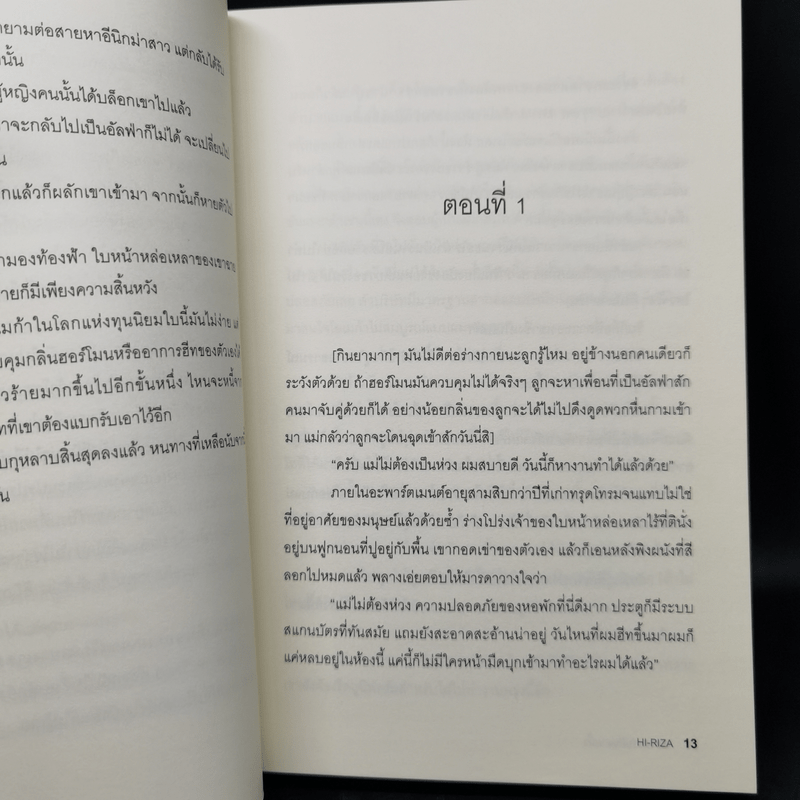 ยามต่อสายหาอีนิกม่าสาว แต่กลับได้รับ
นั้น
ผู้หญิงคนนั้นได้บล็อกเขาไปแล้ว
าจะกลับไปเป็นอัลฟ่าก็ไม่ได้ จะเปลี่ยนไป
น
แล้วก็ผลักเขาเข้ามา จากนั้นก็หายตัวไป
มองท้องฟ้า ใบหน้าหล่อเหลาของเขาฉาย
ายก็มีเพียงความสิ้นหวัง
มก้าในโลกแห่งทุนนิยมใบนี้มันไม่ง่าย แค่
คุมกลิ่นฮอร์โมนหรืออาการฮีทของตัวเองได้
วร้ายมากขึ้นไปอีกขั้นหนึ่ง ไหนจะหนี้จาก
ที่เขาต้องแบกรับเอาไว้อีก
บกุหลาบสิ้นสุดลงแล้ว หนทางที่เหลือนับจาก
น
ตอนที่ 1
[กินยามากๆ มันไม่ดีต่อร่างกายนะลูกรู้ไหม อยู่ข้างนอกคนเดียวก็
ระวังตัวด้วย ถ้าฮอร์โมนมันควบคุมไม่ได้จริงๆ ลูกจะหาเพื่อนที่เป็นอัลฟ่าสัก
คนมาจับคู่ด้วยก็ได้ อย่างน้อยกลิ่นของลูกจะได้ไม่ไปดึงดูดพวกหื่นกามเข้า
มา แม่กลัวว่าลูกจะโดนฉุดเข้าสักวันนี่สิ]
“ครับ แม่ไม่ต้องเป็นห่วง ผมสบายดี วันนี้ก็หางานทำได้แล้วด้วย”
ภายในอะพาร์ตเมนต์อายุสามสิบกว่าปีที่เก่าทรุดโทรมจนแทบไม่ใช่
ที่อยู่อาศัยของมนุษย์แล้วด้วยซ้ำ ร่างโปร่งเจ้าของใบหน้าหล่อเหลาไร้ที่ตินั่ง
อยู่บนฟูกนอนที่ปูอยู่กับพื้น เขากอดเข่าของตัวเอง แล้วก็เอนหลังพิงผนังที่สี
ลอกไปหมดแล้ว พลางเอ่ยตอบให้มารดาวางใจว่า
“แม่ไม่ต้องห่วง ความปลอดภัยของหอพักที่นี่ดีมาก ประตูก็มีระบบ
สแกนบัตรที่ทันสมัย แถมยังสะอาดสะอ้านน่าอยู่ วันไหนที่ผมฮีทขึ้นมาผมก็
แค่หลบอยู่ในห้องนี้ แค่นี้ก็ไม่มีใครหน้ามืดบุกเข้ามาทำอะไรผมได้แล้ว”
HI-RIZA 13